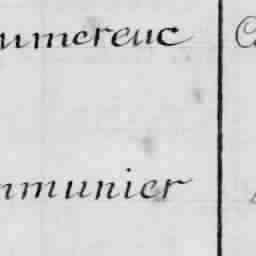 umereuc
mmunier